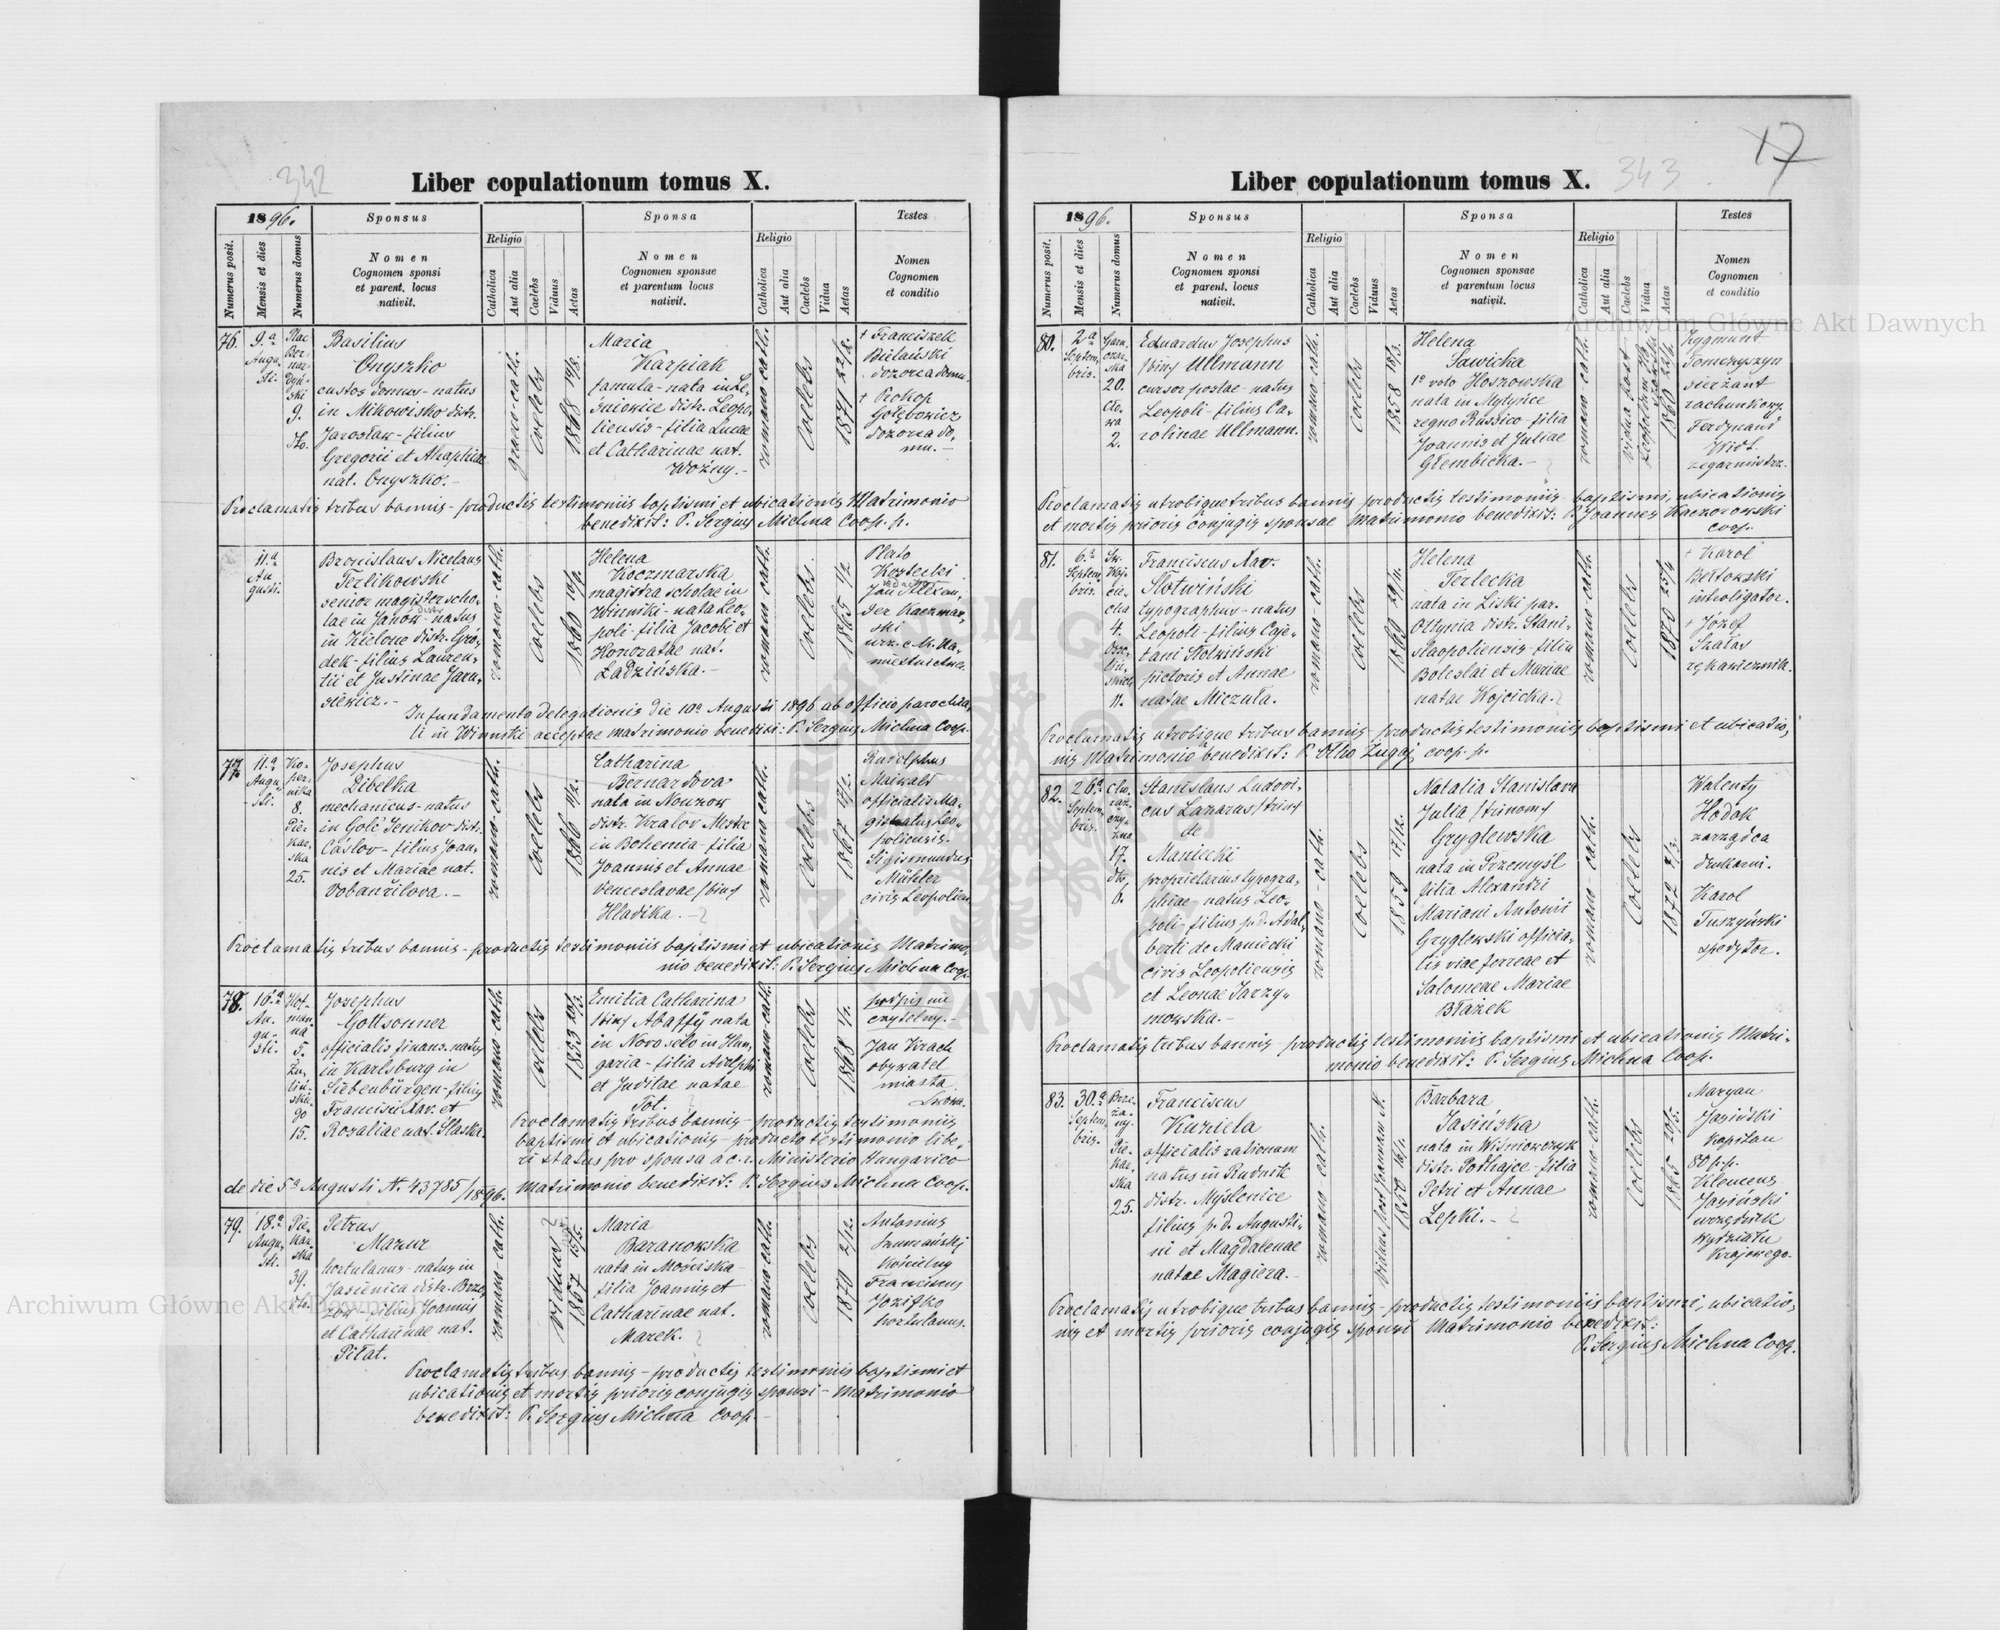 342
Liber copulationum tomus X.
1896.
Sponsus
Sponsa
Testes
Numerus posit.
Mensis et dies
Numerus domus
Nomen
Cognomen sponsi
et parent. locus
nativit.
Religio
Catholica
Aut alia
Caelebs
Viduus
Aetas
Nomen
Cognomen sponsae
et parentum locus
nativit.
Religio
Catholica
Aut alia
Caelebs
Vidua
Aetas
Nomen
Cognomen
et conditio
76.
9.a
Augu-
sti.
Plac
Ber-
nar-
dyń-
ski
9.
dto.
Basilius
Onyszko
custos domus - natus
in Mikowisko distr.
Jarosław - filius
Gregorii et Ahaphiae
nat. Onyszko. -
graeco-cath.
Coelebs
1868
Maria
Karpiak
famula - nata in Le-
śniowice distr. Leopo-
liensis - filia Lucae
et Catharinae nat.
Woźny. -
romano cath.
Coelebs
1871 22/2.
† Franciszek
Bielański
dozorca domu.
† Prokop
Gołębowicz
dozorca do-
mu. -
Proclamatis tribus bannis - productis testimoniis baptismi et ubicationis Matrimonio
benedixit: P. Sergius Michna Coop. p.
11.a
Au
gusti.
Bronislaus Nicolaus
Terlikowski
senior magister scho-
lae in Janów - natus
in Kielone distr. Gró-
dek - filius Lauren-
tii et Justinae Jaru-
siewicz. -
romano-cath.
Coelebs
1860
Helena
Koczmarska
magistra scholae in
Winniki - nata Leo-
poli - filia Jacobi et
Honoratae nat.
Ładzińska. -
romano-cath.
Coelebs.
1865 1/2
Plato
Kostecki
Jan Alexan-
der Kaczmar-
ski
urz. c. k. Na-
miestnictwa.
In fundamento delegationis die 10a Augusti 1896 ab officio parochia-
li in Winniki acceptae matrimonio benedixi: P. Sergius Michna Coop.
77.
11.a
Augu-
sti.
Ko-
per-
nika
8.
Pie-
kar-
ska
25.
Josephus
Dibelka
mechanicus - natus
in Golč Jenikov distr.
Cáslov - filius Joan-
nis et Mariae nat.
Vobařilova. -
romano-cath.
Coelebs
1866
Catharina
Bernardova
nata in Nouzow
distr. Kralov Mestec
in Bohemia - filia
Joannis et Annae
Venceslavae /bin/
Hladika. -
romano cath.
Coelebs
1867
Rudolphus
Maiwald
officialis Ma-
gistratus Leo-
poliensis
Sigismundus
Mühler
civis Leopolien.
Proclamatis tribus bannis - productis testimoniis baptismi et ubicationis Matrimo-
nio benedixit: P. Sergius Michna Coop.
78.
16.a
Au-
gu-
sti.
5.
15.
Josephus
Gottsonner
officialis finans. natus
in Karlsburg in
Siebenbürgen - filius
Francisci Xav. et
Rozaliae nat. Slaska.
romano cath.
Coelebs
1853
Emilia Catharina
/bin/ Abaffÿ nata
in Novoselo in Hun-
garia - filia Adolphi
et Juditae natae
Tot.
romano-cath.
Coelebs
1868 1/2.
podpis nie
czytelny. -
Jan Krach
obywatel
miasta
Lwowa.
Proclamatis tribus bannis - productis testimoniis
baptismi et ubicationis - producto testimonio libe-
ri status pro sponsa a c. r. Ministerio Hungarico
de die 5a Augusti N. 43785/1896. Matrimonio benedixit: P. Sergius Michna Coop.
79.
18.a
Augu-
sti.
Pie-
kar-
ska
39.
dto.
Petrus
Mazur
hortulanus - natus in
Jasienica distr. Brzo-
zów - filius Joannis
et Catharinae nat.
Piłat.
romano-cath.
Viduus
1857 15/5.
Maria
Baranowska
nata in Mościska -
filia Joannis et
Catharinae nat.
Marek.
romano-cath.
Coelebs
1870 2/12.
Antonius
Szumański
Kościelny
Franciscus
Jozifko
hortulanus.
Proclamatis tribus bannis - productis testimoniis baptismi et
ubicationis et mortis prioris conjugis sponsi - Matrimonio
benedixit: P. Sergius Michna Coop. -
17
343
Liber copulationum tomus X.
1896.
Sponsus
Sponsa
Testes
Numerus posit.
Mensis et dies
Numerus domus
Nomen
Cognomen sponsi
et parent. locus
nativit.
Religio
Catholica
Aut alia
Caelebs
Viduus
Aetas
Nomen
Cognomen sponsae
et parentum locus
nativit.
Religio
Catholica
Aut alia
Caelebs
Vidua
Aetas
Nomen
Cognomen
et conditio
80.
2.a
Septem-
bris.
Garn-
czar-
ska
20.
Cło-
wa
2.
Eduardus Josephus
/bin/ Ullmann
cursor postae - natus
Leopoli - filius Ca-
rolinae Ullmann.
romano-cath.
Coelebs
1858 18/3.
Helena
Sawicka
1o voto Hoszowska
nata in Mytyńce
regno Russico - filia
Joannis et Juliae
Głembicka. -
romano-cath.
Vidua post
1860
Zygmunt
Tomczyszyn
sierżant
rachunkowy.
Ferdynand
Widt.
zegarmistrz.
Proclamatis utrobique tribus bannis productis testimoniis baptismi, ubicationis
et mortis prioris conjugis sponsae Matrimonio benedixit: P. Joannes Kaczorowski
coop.
81.
6.a
Septem-
bris.
Św.
Woj-
cie-
cha
4.
Osso-
liń-
skich
11.
Franciscus Xav.
Słotwiński
typographus - natus
Leopoli - filius Caje-
tani Słotwiński
pictoris et Annae
natae Miczuła.
romano-cath.
Coelebs
1860 29/11.
Helena
Terlecka
nata in Liski par.
Ottynia distr. Stani-
slaopoliensis - filia
Boleslai et Mariae
natae Wojcicka.
romano-cath.
Coelebs
1870 25/4
† Karol
Bełtowski
introligator.
† Józef
Szałas
rękawicznik.
Proclamatis utrobique tribus bannis productis testimoniis baptismi et ubicatio-
nis Matrimonio benedixit: P. Otho Zuggi coop. p.
82.
26.a
Septem-
bris.
Cho-
rąż-
czy-
zna
17.
dto
6.
Stanislaus Ludovi-
cus Lazarus /trin/
de
Maniecki
proprietarius typogra-
phiae - natus Leo-
poli - filius p.d. Adal-
berti de Maniecki
civis Leopoliensis
et Leonae Jarzy-
mowska. -
romano-cath.
Coelebs
1859 17/12.
Natalia Stanislava
Julia /trinom/
Gryglewska
nata in Przemyśl
filia Alexandri
Mariani Antonii
Gryglewski officia-
lis viae ferreae et
Salomeae Mariae
Błażek
romano-cath.
Coelebs
1872
Walenty
Hodak
zarządca
drukarni.
Karol
Tuszyński
spedytor.
Proclamatis tribus bannis productis testimoniis baptismi et ubicationis Matri-
monio benedixit: P. Sergius Michna Coop.
83.
30.a
Septem-
bris.
Brze-
ża-
ny.
Pie-
kar-
ska
25.
Franciscus
Kuziela
officialis rationum
natus in Rudnik
distr. Myślenice
filius p.d. Augusti-
ni et Magdalenae
natae Magiera. -
romano cath.
Viduus post Joannam N.
1850 16/1.
Barbara
Jasińska
nata in Wiśniowczyk
distr. Podhajce - filia
Petri et Annae
Lepki. -
romano-cath.
Coelebs
1865 20/5.
Maryan
Jasiński
Kapitan
80 p.p.
Klemens
Jasiński
urzędnik
Wydziału
Krajowego.
Proclamatis utrobique tribus bannis - productis testimoniis baptismi, ubicatio-
nis et mortis prioris conjugis sponsi Matrimonio benedixit:
P. Sergius Michna Coop.
Archiwum Główne Akt Dawnych
Archiwum Główne Akt Dawnych